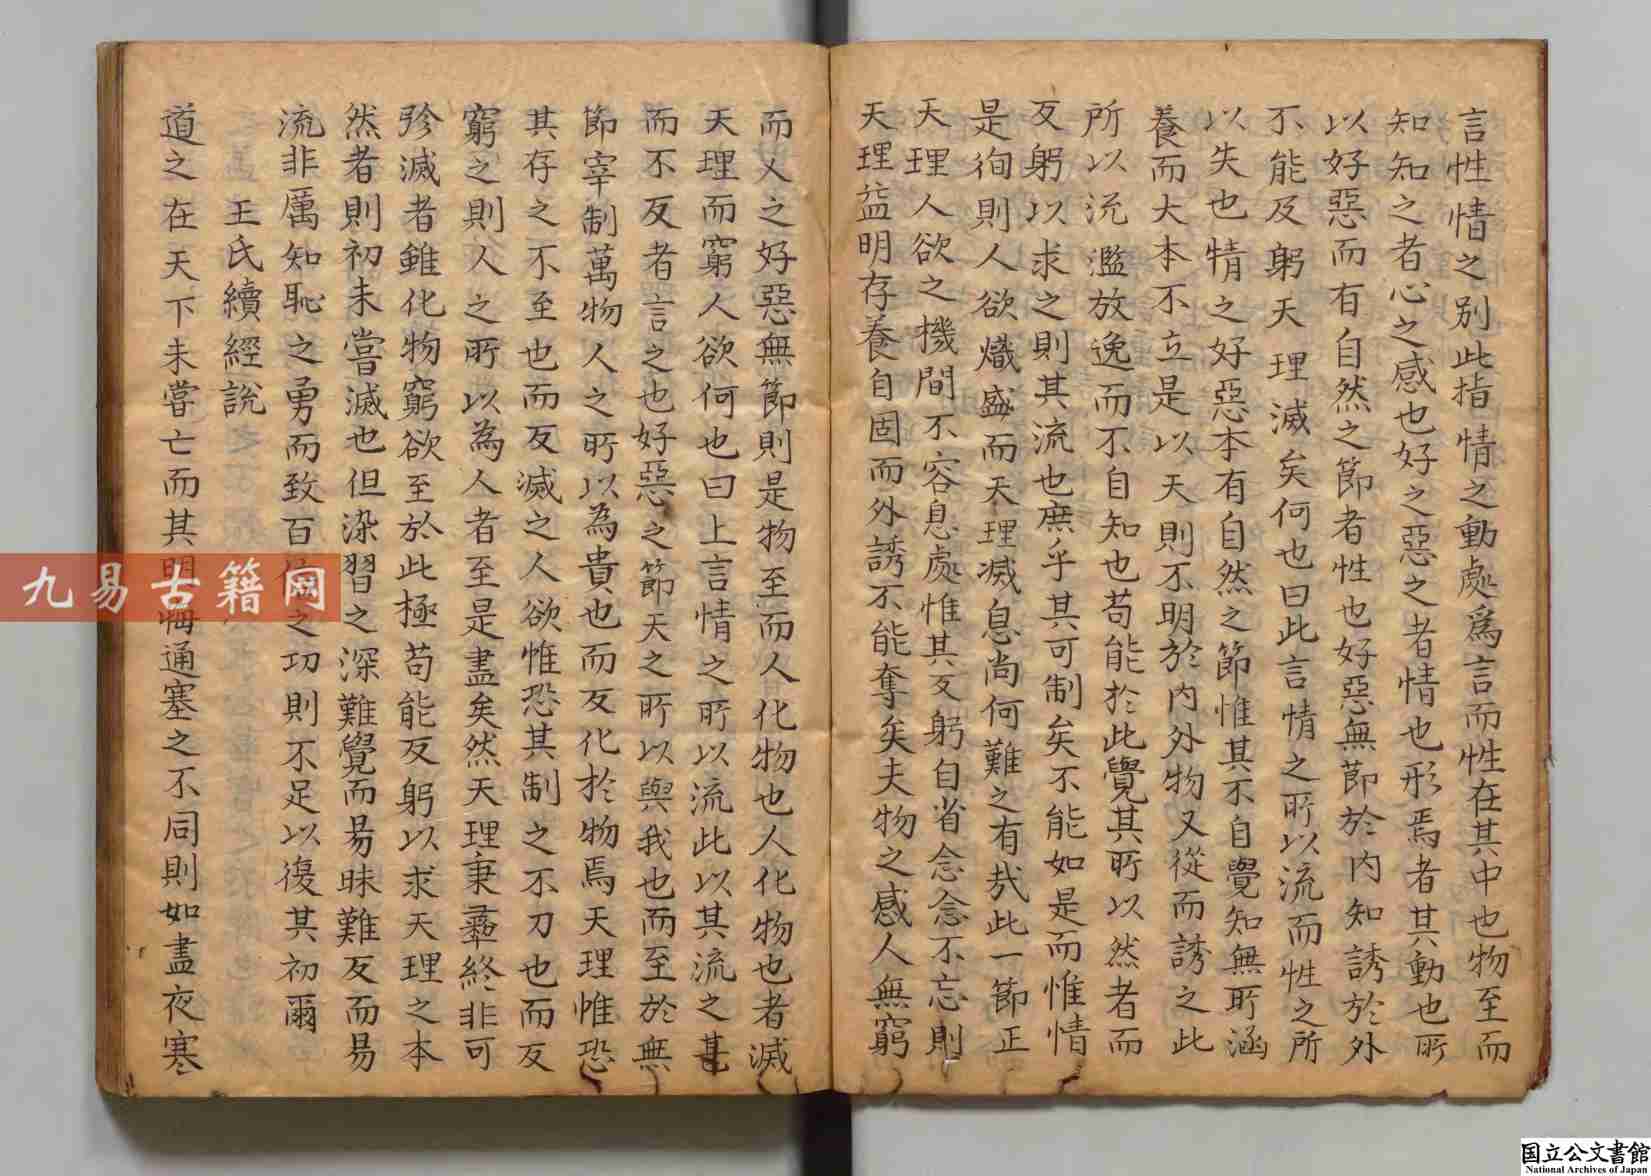 言性情之別此指情之動處為言而性在其中也物至而
知知之者心之感也好之惡之者情也形焉者其動也所
以好惡而有自然之節者性也好惡無節於內知誘於外
不能反躬天理滅矣何也曰此言情之所以流而性之所
以失也情之好惡本有自然之節惟其不自覺知無所涵
養而大本不立是以天則不明於內外物又從而誘之此
所以流濫放逸而不自知也苟能於此覺其所以然者而
反躬以求之則其流也庶乎其可制矣不能如是而惟情
是徇則人欲熾盛而天理滅息尚何難之有哉此一節正
天理人欲之機間不容息處惟其反躬自省念念不忘則
天理益明存養自固而外誘不能奪矣夫物之感人無窮
而人之好惡無節則是物至而人化物也人化物也者滅
天理而窮人欲何也曰上言情之所以流此以其流之甚
而不反者言之也好惡之節天之所以與我也而至於無
節宰制萬物人之所以為貴也而反化於物焉天理惟恐
其存之不至也而反滅之人欲惟恐其制之不力也而反
窮之則人之所以為人者至是盡矣然天理秉彝終非可
殄滅者雖化物窮欲至於此極苟能反躬以求天理之本
然者則初未嘗滅也但染習之深難覺而易昧難反而易
流非厲知恥之勇而致百倍之功則不足以復其初爾
王氏續經說
道之在天下未嘗亡而其明晦通塞之不同則如晝夜寒
九易古籍网
国立公文書館
National Archives of Japan